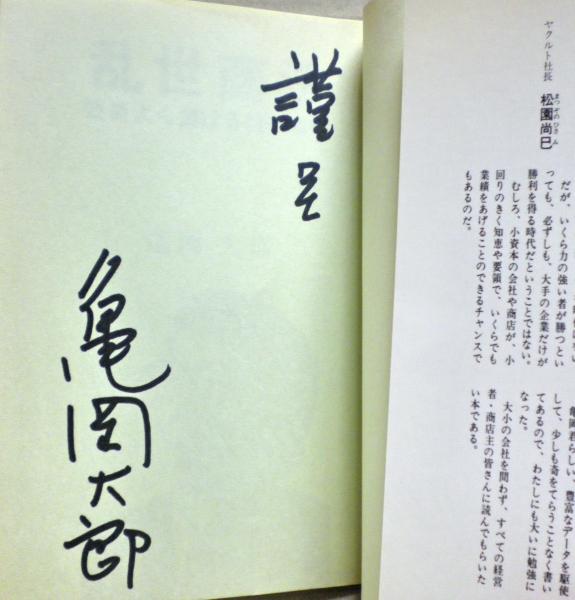 ヤクルト社長
松園尚巳
まつぞのひさみ
だが、いくら力の強い者が勝つとい
っても、必ずしも、大手の企業だけが
勝利を得る時代だということではない。
むしろ、小資本の会社や商店が、小
回りのきく知恵や要領で、いくらでも
業績をあげることのできるチャンスで
もあるのだ。
亀岡君らしい、豊富なデータを駆使
して、少しも奇をてらうことなく書い
てあるので、わたしにも大いに勉強に
なった。
大小の会社を問わず、すべての経営
者・商店主の皆さんに読んでもらいた
い本である。
謹呈
亀岡太郎